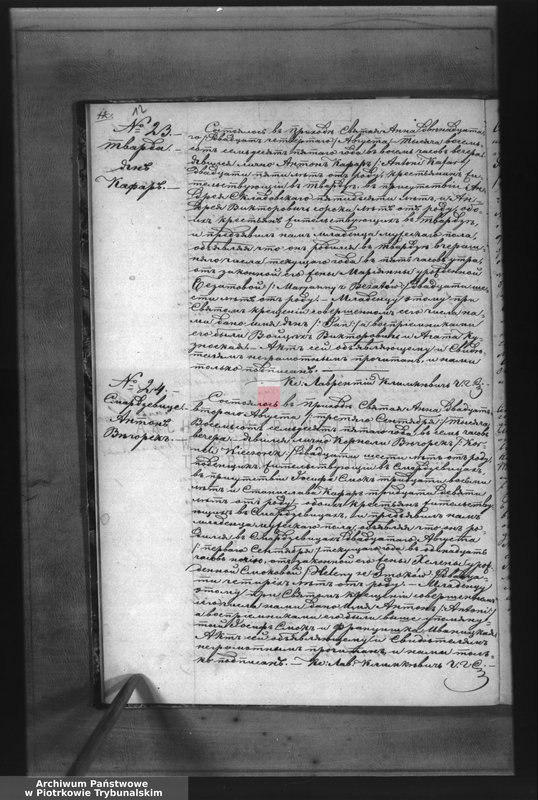 12
№ 23.
Тварды.
Янъ
Кафаръ.
Состоялось въ приходѣ Святая Анна
Августа Тысяча восемь-
сотъ семьдесятъ пятаго года въ восемь часовъ вечера
явился лично Антонъ Кафаръ /: Antoni Kafar :/
двадцати пяти лѣтъ отъ роду, крестьянинъ жи-
тельствующій въ Твардѣ, въ присутствіи Ан-
пятидесяти лѣтъ и Ан-
дрея Викторовича сорока лѣтъ отъ роду, обо-
ихъ крестьянъ жительствующихъ въ Твардѣ,
и предъявилъ намъ младенца мужескаго пола
объявляя что онъ родился въ Твардѣ вчераш-
няго числа текущаго года въ пять часовъ утра,
отъ законной его жены Маріанны урожденной
двадцати шес-
ти лѣтъ отъ роду. — Младенцу этому при
Святомъ крещеніи совершенномъ сего числа на-
ми дано имя Янъ /: Jan :/ а воспріемниками
его были Войцехъ Викторовичъ и Агата
Актъ сей объявляющему и свидѣ-
телямъ неграмотнымъ прочитанъ, и нами
только подписанъ. —
Кс. Лаврентій Климкевичъ
№ 24.
Смардзевице.
Антонъ
Вѣчорекъ.
Состоялось въ приходѣ Святая Анна двадцать
втораго Августа /: третяго Сентября :/ Тысяча
восемьсотъ семьдесятъ пятаго года въ семь часовъ
вечера. Явился лично Корнели Вѣчорекъ /: Kor-
neli Wieczorek :/ двадцати шести лѣтъ отъ роду
жительствующій въ Смардзевицахъ,
въ присутствіи Іосифа Смокъ тридцати восьми
лѣтъ и Станислава Кафаръ тридцати девяти
лѣтъ отъ роду, обоихъ крестьянъ жительству-
ющихъ въ Смардзевицахъ, и предъявилъ намъ
младенца мужескаго пола, объявляя что онъ ро-
дился въ Смардзевицахъ двадцатаго Августа
/: перваго Сентября :/ текущаго года въ одинадцать
часовъ ночью, отъ законной его жены Елены урож-
денной Смоковой /: Heleny ze Smoków :/ двадца-
ти четырехъ лѣтъ отъ роду. — Младенцу
этому при Святомъ крещеніи совершенномъ
сего числа нами дано имя Антонъ /: Antoni :/
а воспріемниками его были выше упомяну-
тый Іосифъ Смокъ и Францишка Иваницкая
Актъ сей объявляющему и свидѣтелямъ
неграмотнымъ прочитанъ, и нами толь-
ко подписанъ. — Кс. Лавр. Климкевичъ
Archiwum Państwowe
w Piotrkowie Trybunalskim